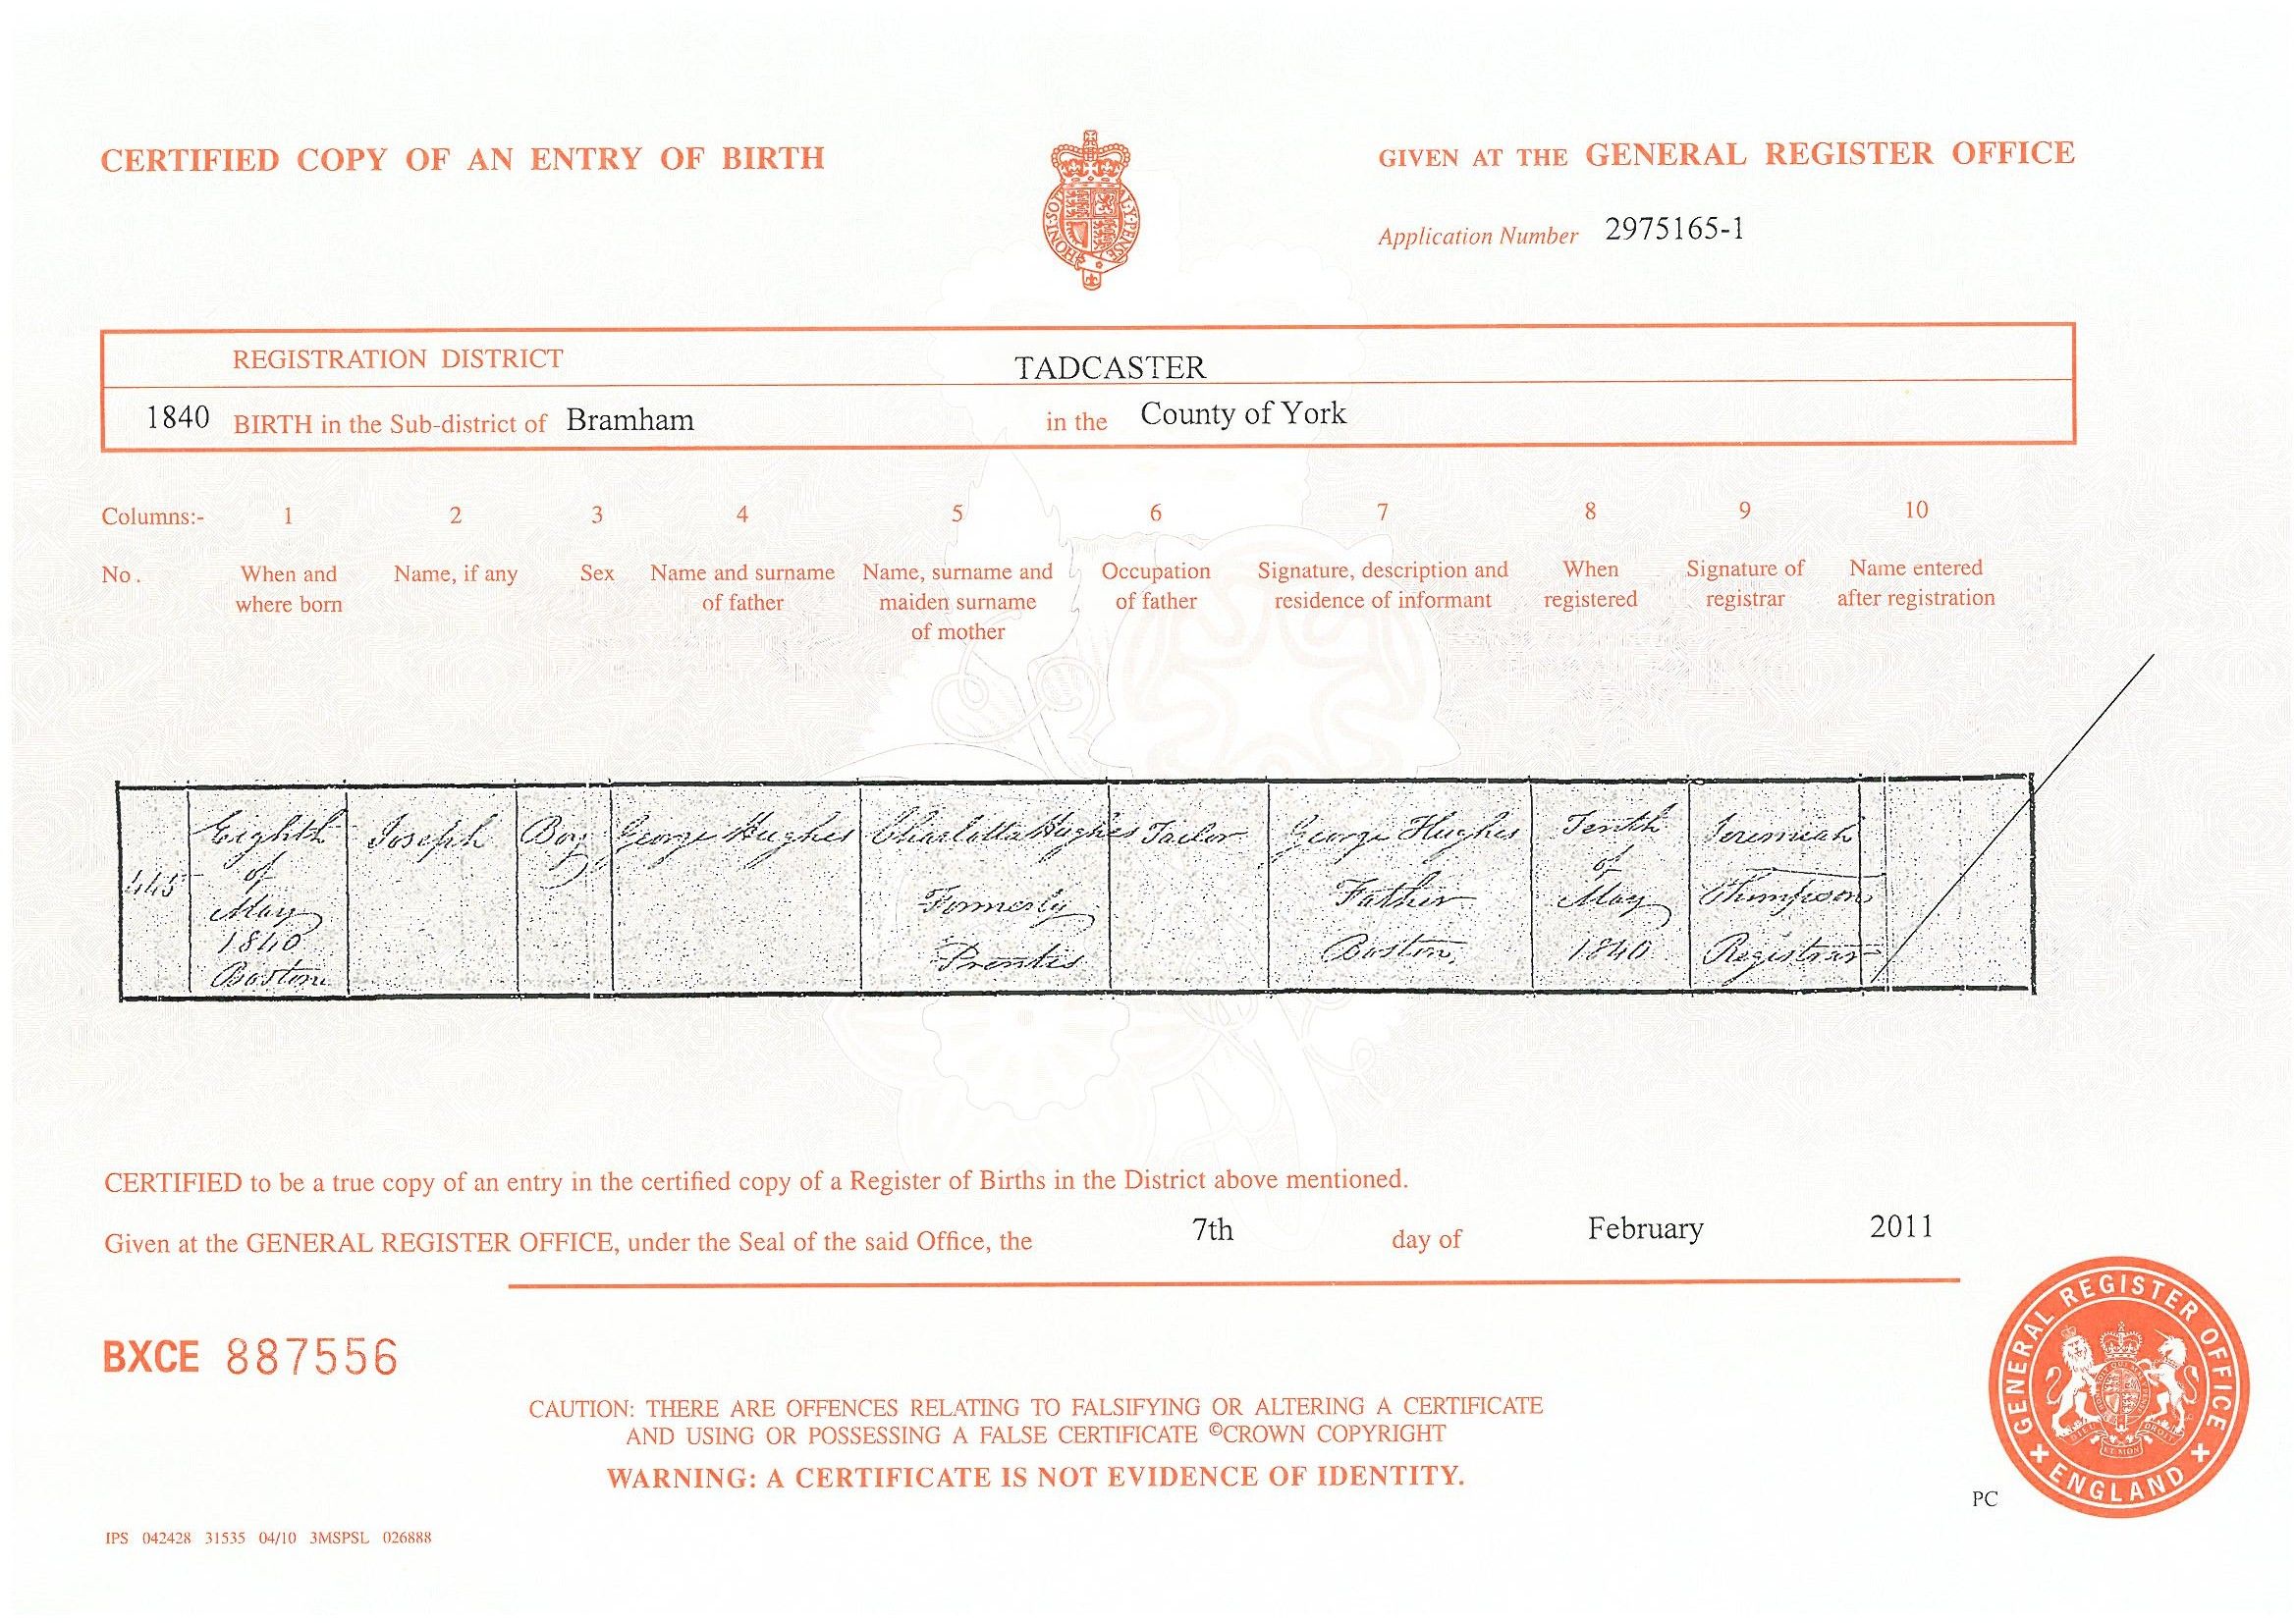 CERTIFIED COPY OF AN ENTRY OF BIRTH
GIVEN AT THE GENERAL REGISTER OFFICE
HONI·SOIT
AL·Y·PENSE
Application Number 2975165-1
REGISTRATION DISTRICT TADCASTER
1840 BIRTH in the Sub-district of Bramham in the County of York
Columns:- 1 2 3 4 5 6 7 8 9 10
No. When and Name, if any Sex Name and surname Name, surname and Occupation Signature, description and When Signature of Name entered
where born of father maiden surname of father residence of informant registered registrar after registration
of mother
445 Eighth of May 1840 Boston
Joseph
Boy
George Hughes
Charlotte Hughes Formerly Prentis
Tailor
George Hughes Father Boston
Tenth of May 1840
Jeremiah Thompson Registrar
CERTIFIED to be a true copy of an entry in the certified copy of a Register of Births in the District above mentioned.
Given at the GENERAL REGISTER OFFICE, under the Seal of the said Office, the 7th day of February 2011
BXCE 887556
CAUTION: THERE ARE OFFENCES RELATING TO FALSIFYING OR ALTERING A CERTIFICATE
AND USING OR POSSESSING A FALSE CERTIFICATE ©CROWN COPYRIGHT
WARNING: A CERTIFICATE IS NOT EVIDENCE OF IDENTITY.
GENERAL REGISTER OFFICE
ENGLAND
PC
IPS 042428 31535 04/10 3MSPSL 026888